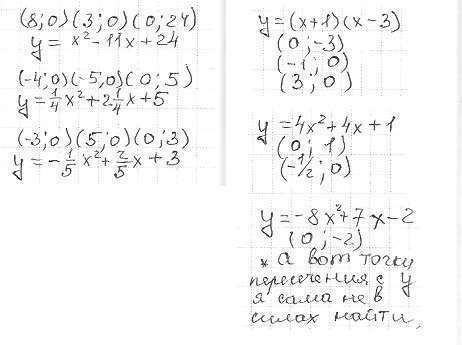 (8;0)(3;0)(0;24)
y = x²-11x+24
(-4;0)(-5;0)(0;5)
y=1/4x²+2 1/4x+5
(-3;0)(5;0)(0;3)
y=-1/5x²+2/5x+3
y=(x+1)(x-3)
(0;-3)
(-1;0)
(3;0)
y=4x²+4x+1
(0;1)
(-1/2;0)
y=-8x²+7x-2
(0;-2)
* а вот точку
пересечения с y
я сама не в
силах найти.